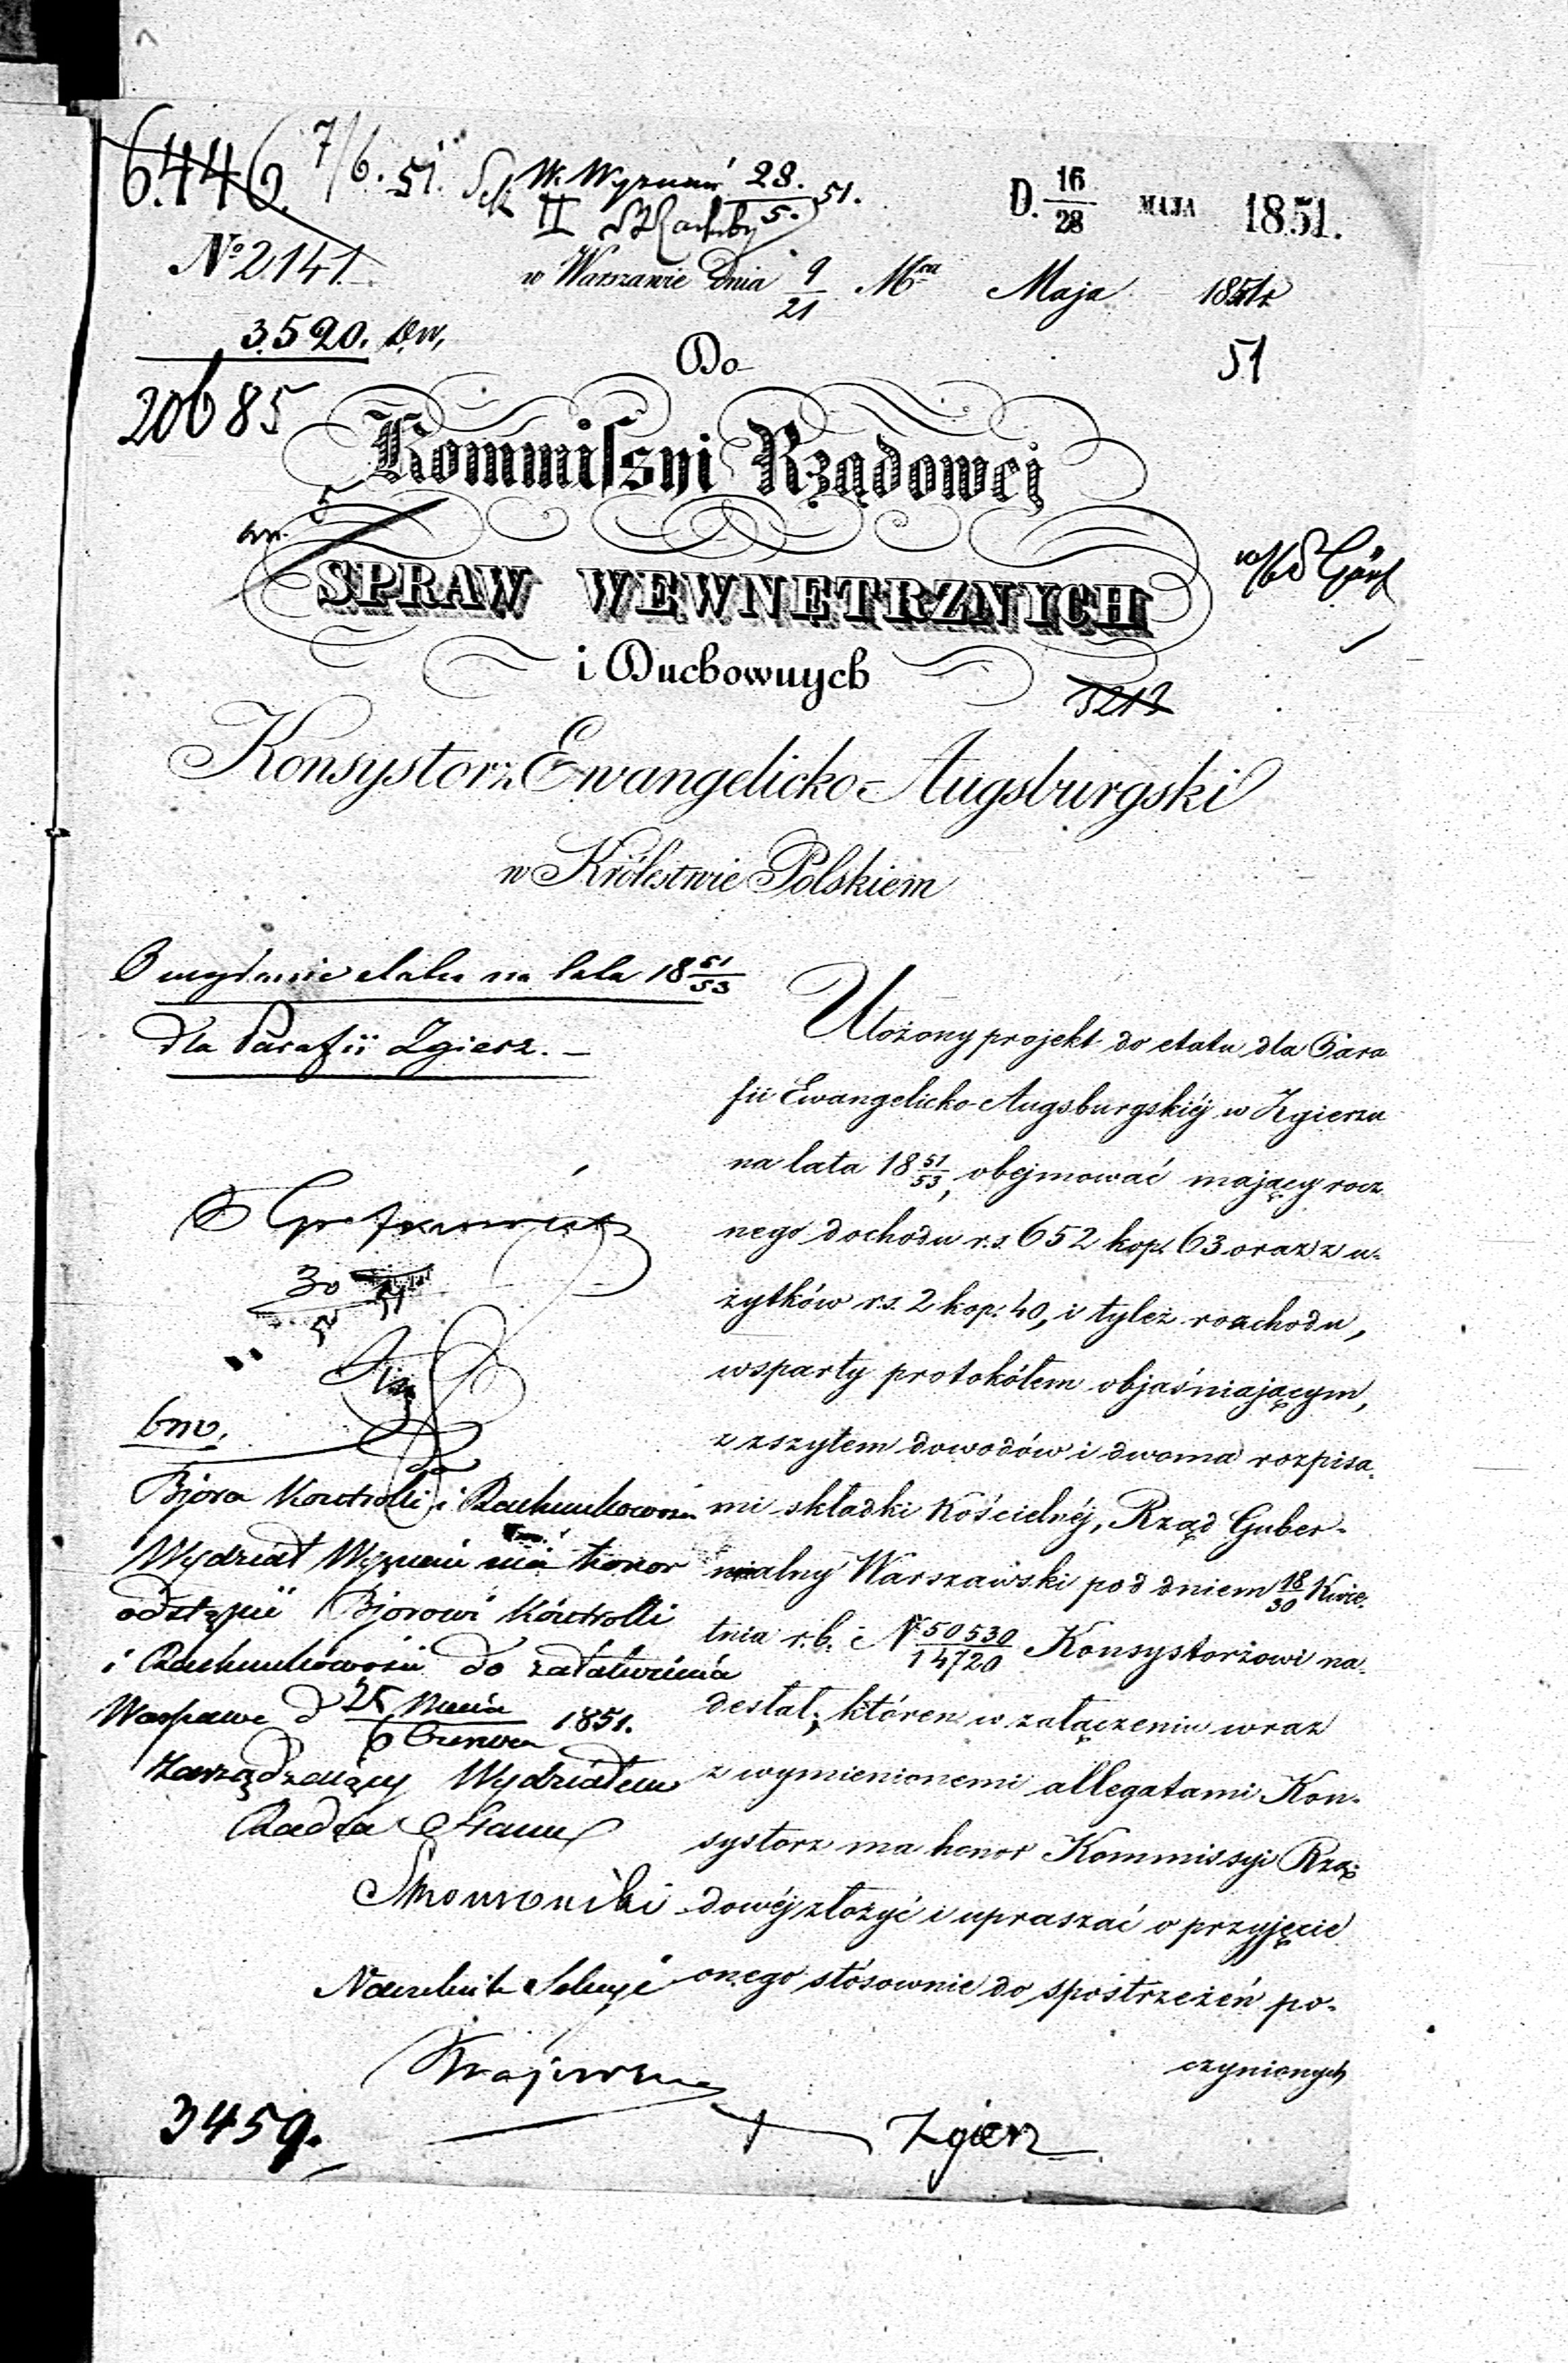 6.446. 7/6. 51. W. Wyznań 28/5. 51.
II
D. 16/28 MAJA 1851.
№ 2.141.
w Warszawie dnia 9/21 Mca Maja 1851 r
3.520.
51
20685
Do
Kommiſsyi Rządowej
SPRAW WEWNETRZNYCH
i Duchownych
3213
Konsystorz Ewangelicko-Augsburgski
w Królestwie Polskiem
O wydanie etatu na lata 18 51/53
dla Parafii Zgierz. –
Ułożony projekt do etatu dla Para
fii Ewangelicko-Augsburgskiéj w Zgierzu
na lata 18 51/53, obejmować mający rocz
nego dochodu r.s. 652 kop. 63 oraz z u-
żytków r.s. 2 kop. 40, i tyleż rozchodu,
wsparty protokółem objaśniającym,
z zszytem dowodów i dwoma rozpisa-
mi składki Kościelnéj, Rząd Guber-
nialny Warszawski pod dniem 18/30 Kwie-
tnia r.b. i № 50530/14720 Konsystorzowi na-
desłał; któren w załączeniu wraz
z wymienionemi allegatami Kon-
systorz ma honor Kommissyi Rzą-
dowéj złożyć i upraszać o przyjęcie
onego stósownie do spostrzeżeń po-
czynionych
30/5
bmo.
Bjóra Kontrolli i Rachunkowości
Wydział Wyznań ma honor
odstąpić Bjórowi Kontrolli
i Rachunkowości do załatwienia
Warszawa d 25 Maia/6 Czerwca 1851.
Zarządzający Wydziałem
Radca Stanu
Naczelnik Sekcyi
3459.
Zgierz